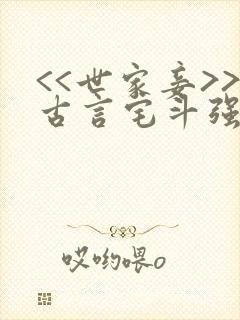 <<世家妾>>
古言宅斗强
哎哟喂o